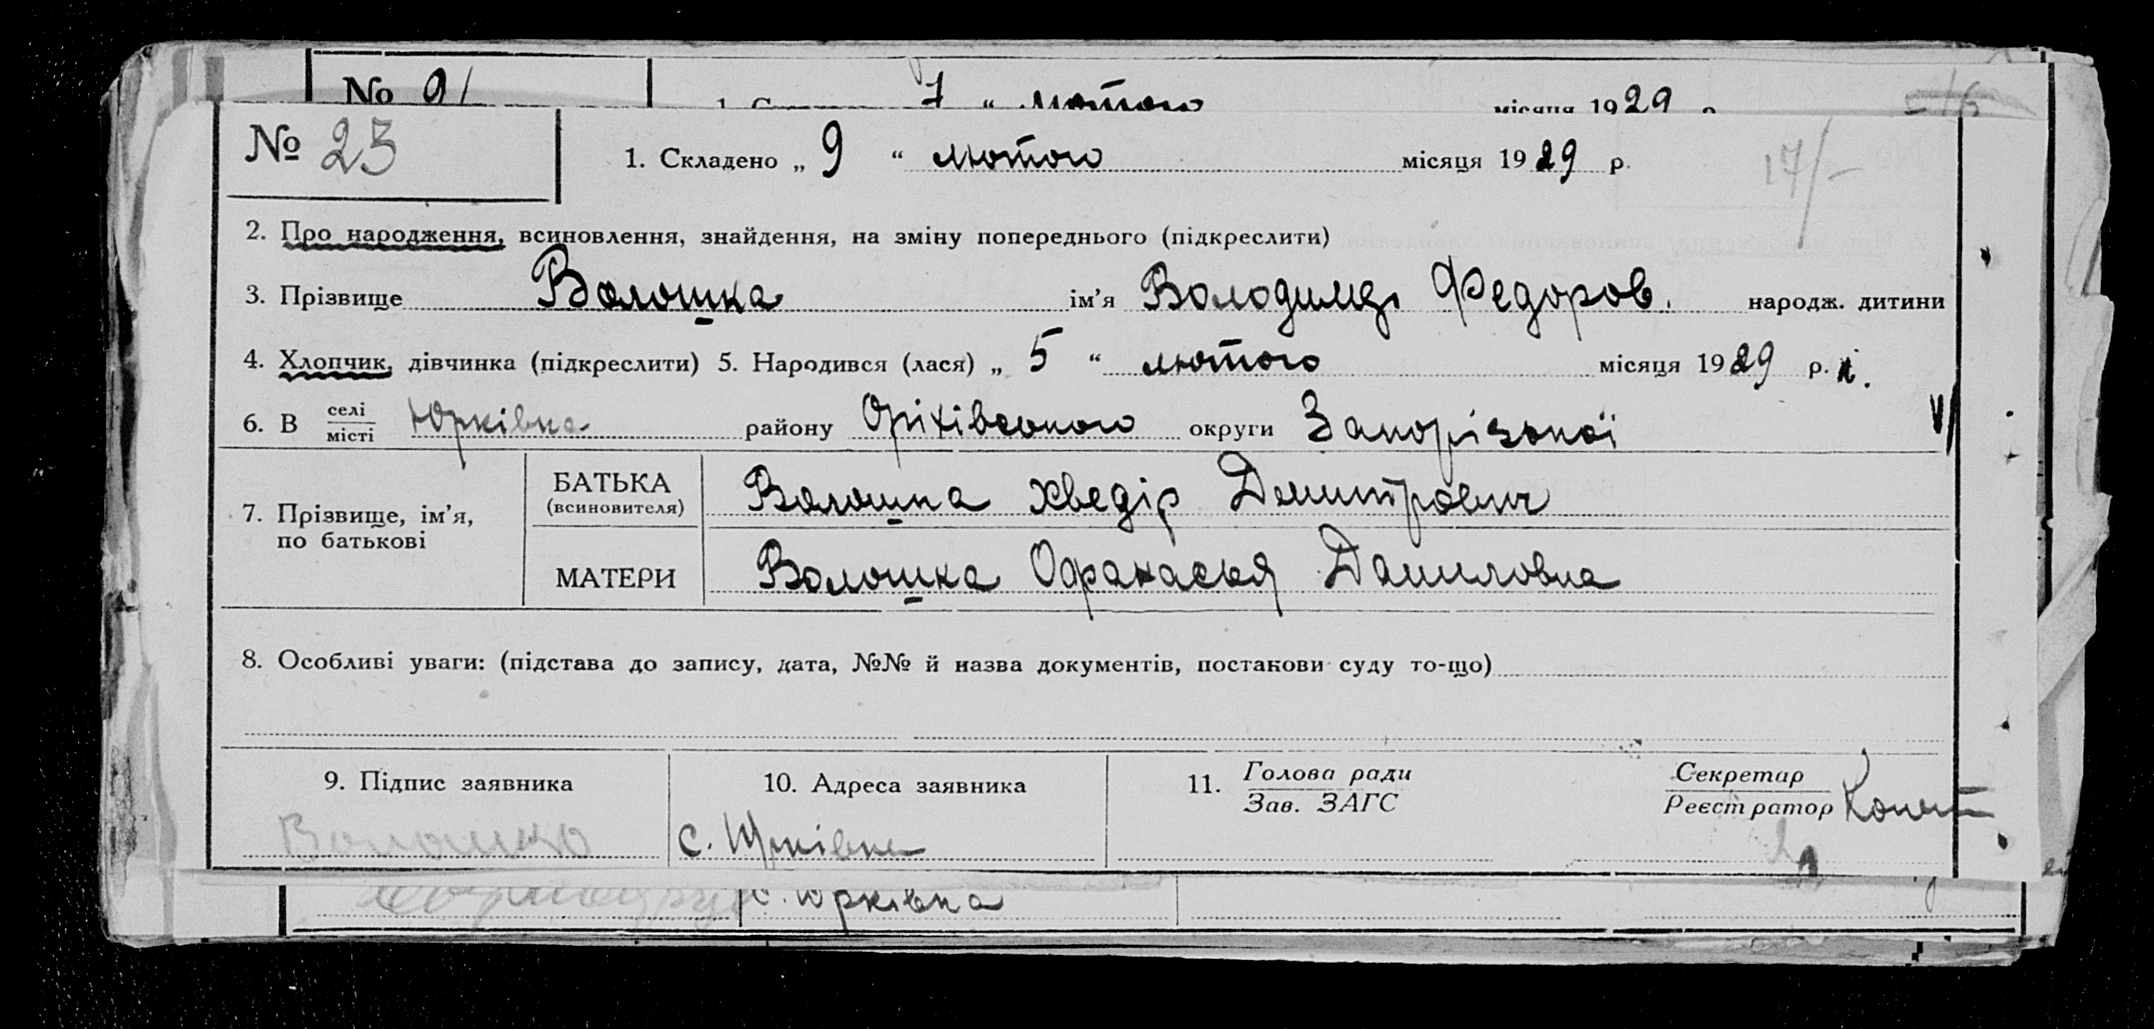 № 91 1. С 7 “ лютого місяця 1929 р
№ 23 1. Складено „ 9 “ лютого місяця 1929 р. 17/-
2. Про народження, всиновлення, знайдення, на зміну попереднього (підкреслити)
3. Прізвище Волошка ім’я Володимір Федоров. народж. дитини
4. Хлопчик, дівчинка (підкреслити) 5. Народився (лася) „ 5 “ лютого місяця 1929 р.
6. В селі/місті Юрківка району Оріхівського округи Запорізької
7. Прізвище, ім’я, по батькові
БАТЬКА (всиновителя) Волошка Хведір Дмитрович
МАТЕРИ Волошка Офанасья Даниловна
8. Особливі уваги: (підстава до запису, дата, №№ й назва документів, постанови суду то-що)
9. Підпис заявника 10. Адреса заявника 11. Голова ради/Зав. ЗАГС Секретар/Реєстратор
Волошко с. Юрківка
с. Юрківка